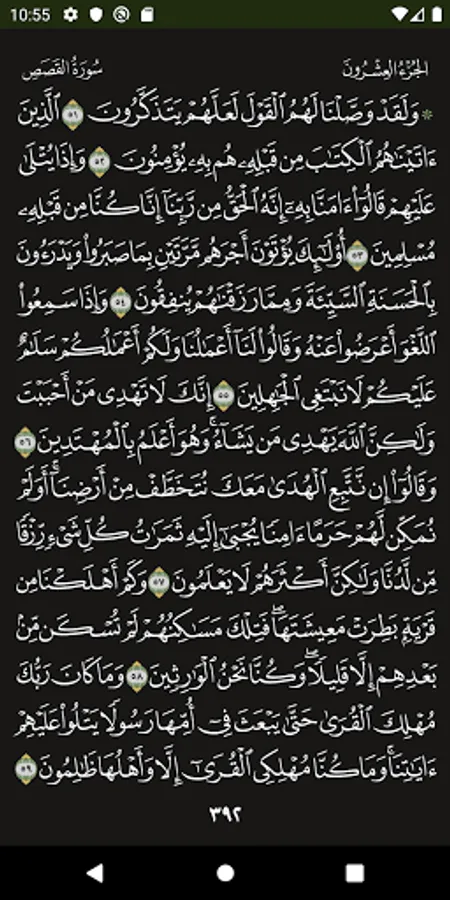 10:55
الجزء العشرون
سورة القصص
۞ وَلَقَدْ وَصَّلْنَا لَهُمُ ٱلْقَوْلَ لَعَلَّهُمْ يَتَذَكَّرُونَ ٥١ ٱلَّذِينَ
ءَاتَيْنَٰهُمُ ٱلْكِتَٰبَ مِن قَبْلِهِۦ هُم بِهِۦ يُؤْمِنُونَ ٥٢ وَإِذَا يُتْلَىٰ
عَلَيْهِمْ قَالُوٓا۟ ءَامَنَّا بِهِۦٓ إِنَّهُ ٱلْحَقُّ مِن رَّبِّنَآ إِنَّا كُنَّا مِن قَبْلِهِۦ
مُسْلِمِينَ ٥٣ أُو۟لَٰٓئِكَ يُؤْتَوْنَ أَجْرَهُم مَّرَّتَيْنِ بِمَا صَبَرُوا۟ وَيَدْرَءُونَ
بِٱلْحَسَنَةِ ٱلسَّيِّئَةَ وَمِمَّا رَزَقْنَٰهُمْ يُنفِقُونَ ٥٤ وَإِذَا سَمِعُوا۟
ٱللَّغْوَ أَعْرَضُوا۟ عَنْهُ وَقَالُوا۟ لَنَآ أَعْمَٰلُنَا وَلَكُمْ أَعْمَٰلُكُمْ سَلَٰمٌ
عَلَيْكُمْ لَا نَبْتَغِى ٱلْجَٰهِلِينَ ٥٥ إِنَّكَ لَا تَهْدِى مَنْ أَحْبَبْتَ
وَلَٰكِنَّ ٱللَّهَ يَهْدِى مَن يَشَآءُ ۚ وَهُوَ أَعْلَمُ بِٱلْمُهْتَدِينَ ٥٦
وَقَالُوٓا۟ إِن نَّتَّبِعِ ٱلْهُدَىٰ مَعَكَ نُتَخَطَّفْ مِنْ أَرْضِنَآ ۚ أَوَلَمْ
نُمَكِّن لَّهُمْ حَرَمًا ءَامِنًا يُجْبَىٰٓ إِلَيْهِ ثَمَرَٰتُ كُلِّ شَىْءٍ رِّزْقًا
مِّن لَّدُنَّا وَلَٰكِنَّ أَكْثَرَهُمْ لَا يَعْلَمُونَ ٥٧ وَكَمْ أَهْلَكْنَا مِن
قَرْيَةٍۭ بَطِرَتْ مَعِيشَتَهَا ۖ فَتِلْكَ مَسَٰكِنُهُمْ لَمْ تُسْكَن مِّنۢ
بَعْدِهِمْ إِلَّا قَلِيلًا ۖ وَكُنَّا نَحْنُ ٱلْوَٰرِثِينَ ٥٨ وَمَا كَانَ رَبُّكَ
مُهْلِكَ ٱلْقُرَىٰ حَتَّىٰ يَبْعَثَ فِىٓ أُمِّهَا رَسُولًا يَتْلُوا۟ عَلَيْهِمْ
ءَايَٰتِنَا ۚ وَمَا كُنَّا مُهْلِكِى ٱلْقُرَىٰٓ إِلَّا وَأَهْلُهَا ظَٰلِمُونَ ٥٩
٣٩٢